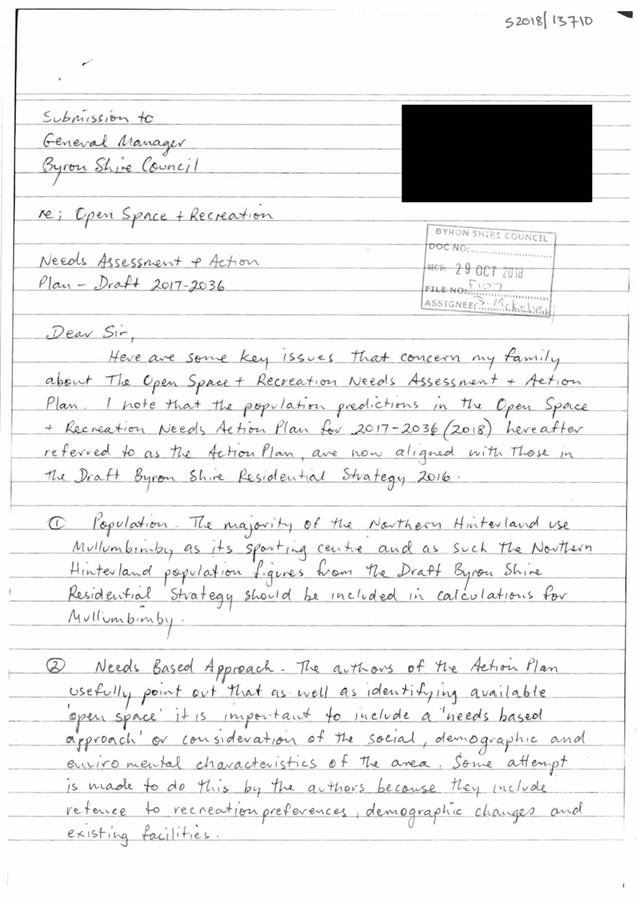 S2018/13710
Submission to
General Manager
Byron Shire Council
re; Open Space + Recreation
Needs Assessment + Action
Plan - Draft 2017-2036
BYRON SHIRE COUNCIL
DOC NO:
RECD: 29 OCT 2018
FILE NO: F107
ASSIGNEE: S.
Dear Sir,
Here are some key issues that concern my family
about The Open Space + Recreation Needs Assessment + Action
Plan. I note that the population predictions in the Open Space
+ Recreation Needs Action Plan for 2017-2036 (2018) hereafter
referred to as the Action Plan, are now aligned with those in
the Draft Byron Shire Residential Strategy 2016.
① Population. The majority of the Northern Hinterland use
Mullumbimby as its sporting centre and as such the Northern
Hinterland population figures from the Draft Byron Shire
Residential Strategy should be included in calculations for
Mullumbimby.
② Needs Based Approach. The authors of the Action Plan
usefully point out that as well as identifying available
'open space' it is important to include a 'needs based
approach' or consideration of the social, demographic and
enviromental characteristics of the area. Some attempt
is made to do this by the authors because they include
refence to recreation preferences, demographic changes and
existing facilities.